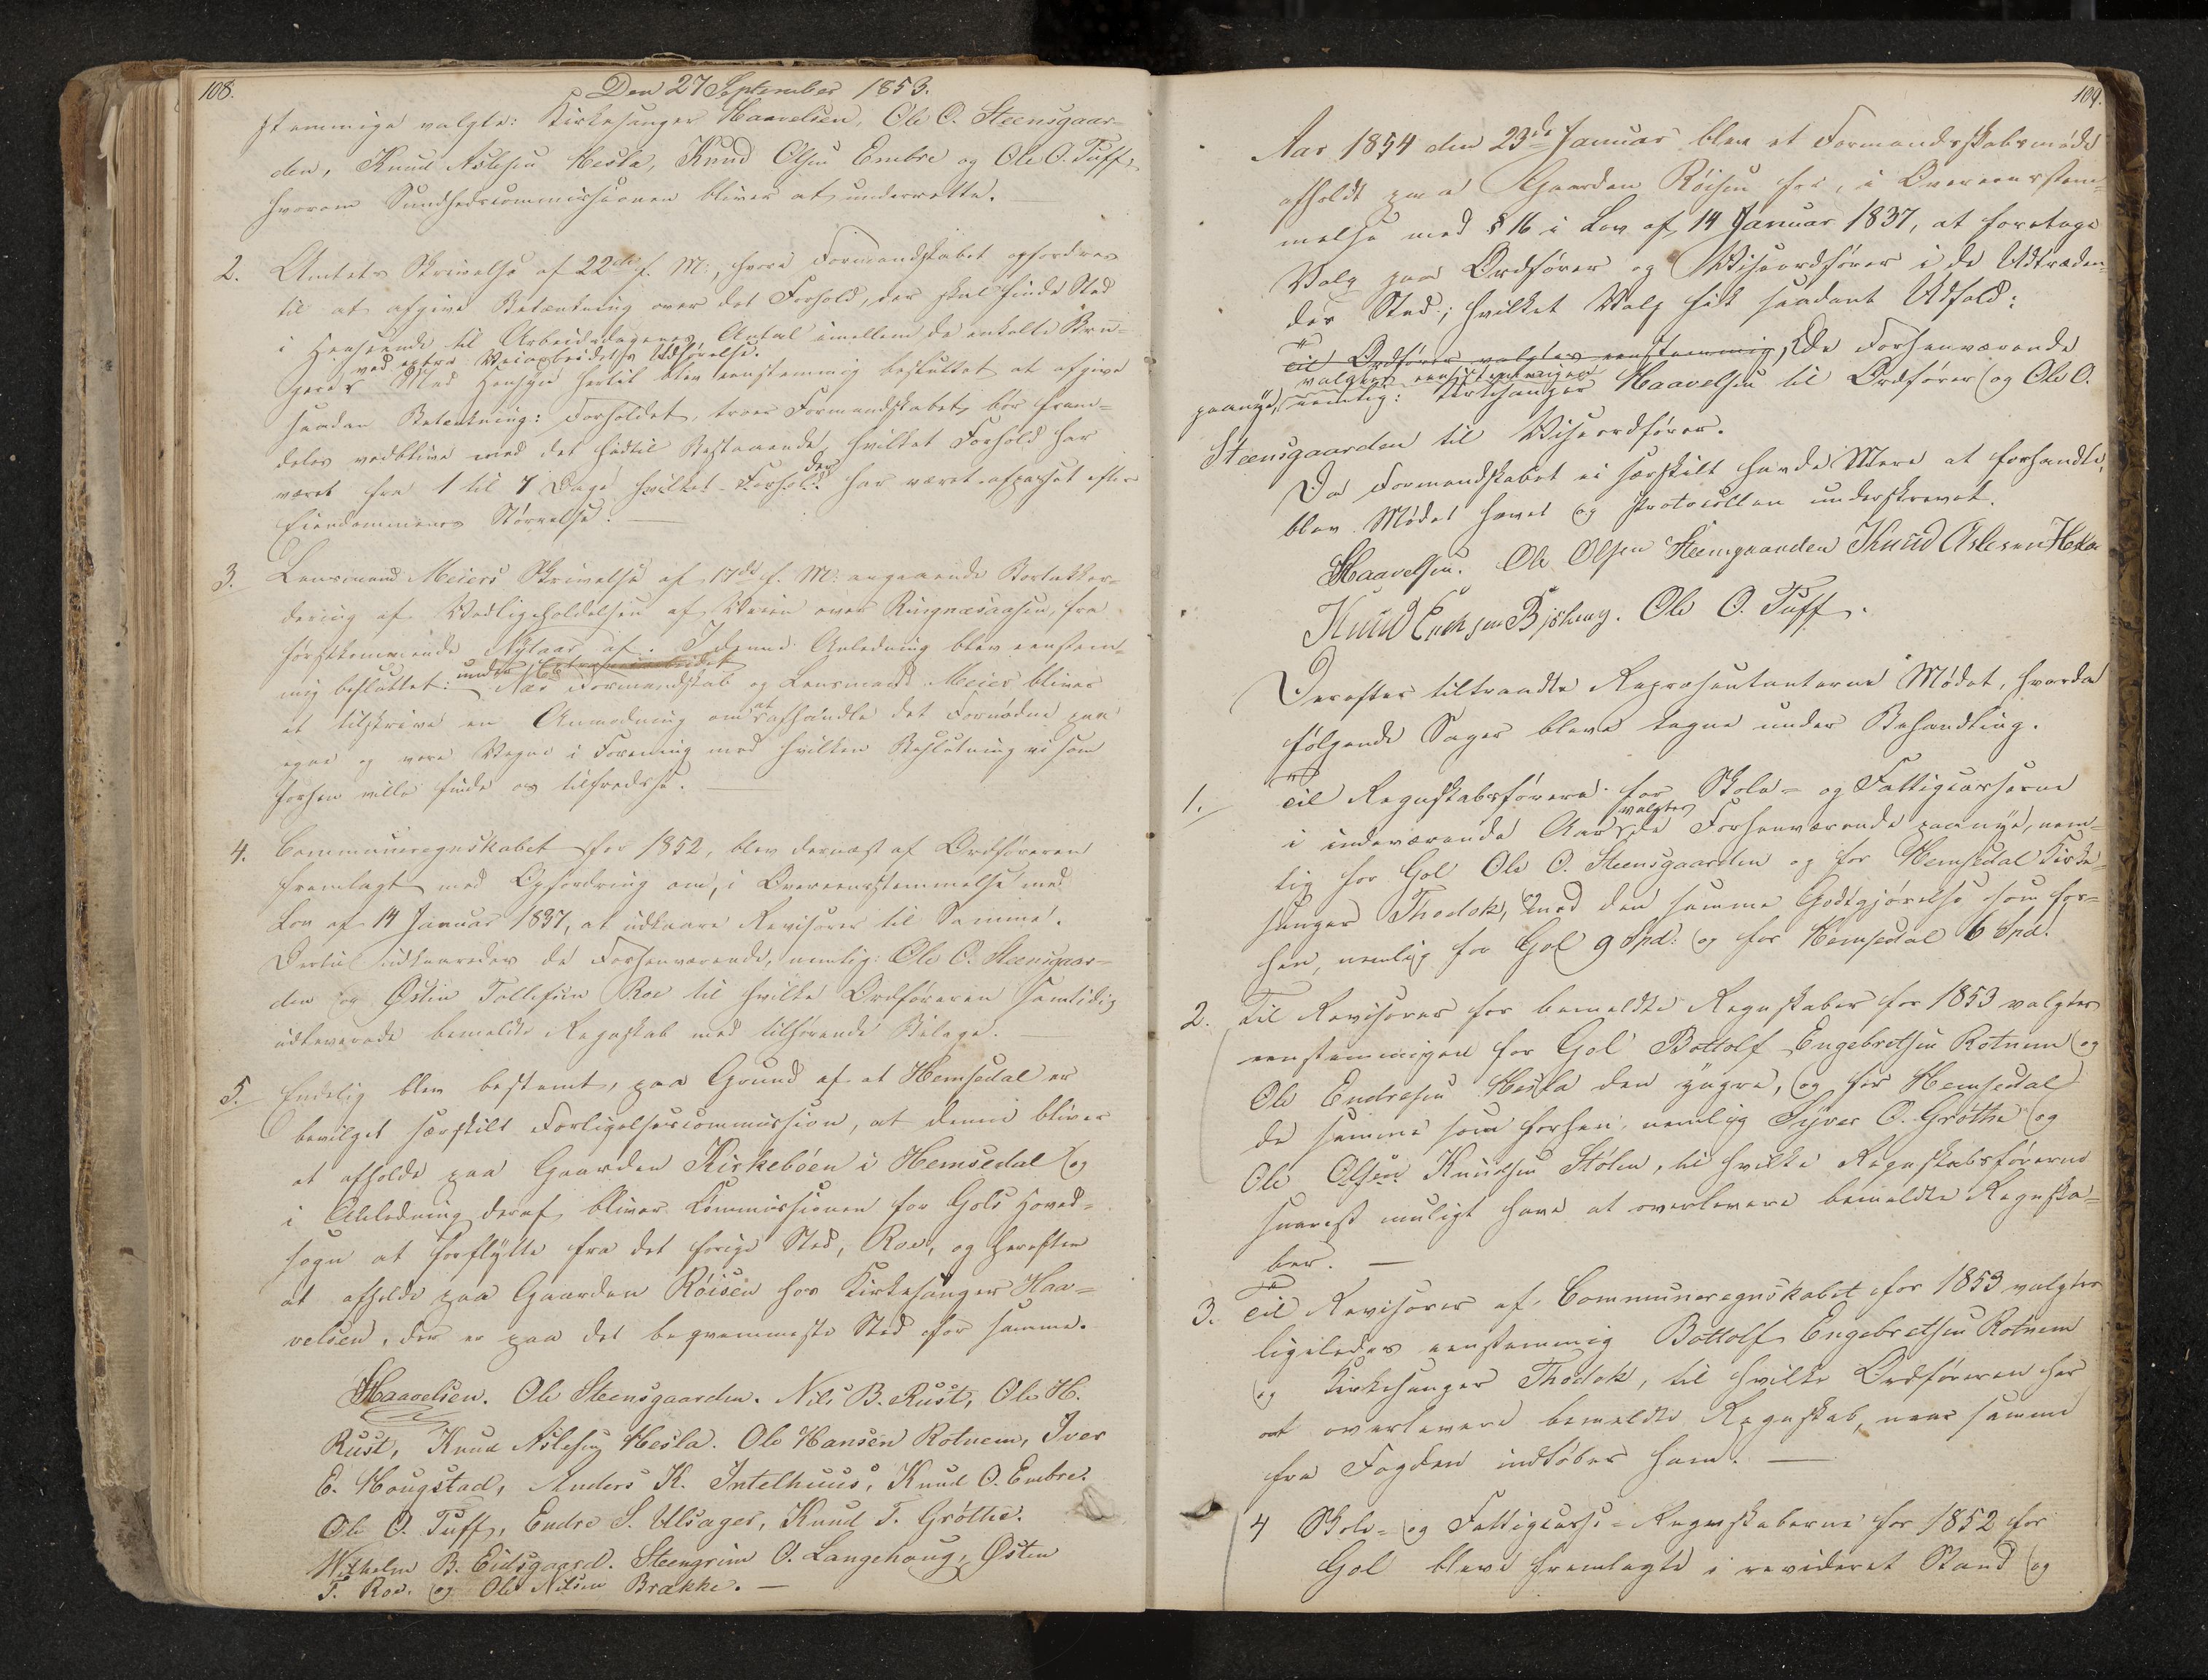 108.
Den 27 September 1853.
stemmige valgte: Kirkesanger Haavelsen, Ole O. Steensgaar-
den, Knud Aslesen Hesla, Knud Olsen Embre og Ole O. Tuff,
hvorom Sundhedscommissionen bliver at underrette.
2. Amtets Skrivelse af 22de f. M:, hvori Formandskabet opfordres
til at afgive Betænkning over det Forhold, der skal finde Sted
i Henseende til Arbeidsdagenes Antal imellem de enkelte Bru-
ved extra Veiarbeidets Udførelse.
geres Med Hensyn hertil blev eenstemmig besluttet at afgive
saadan Betænkning: Forholdet, troer Formandskabet, bør frem-
deles vedblive med det hidtil Bestaaende, hvilket Forhold har
været fra 1 til 7 Dage hvilket Forhold der har været afpasset efter
Eiendommenes Størrelse. —
3. Lensmand Meiers Skrivelse af 17de f. M: angaaende Bortakkor-
dering af Vedligeholdelsen af Veien over Ringnæsaasen, fra
førstkommende Nytaar af. I denne Anledning blev eenstem-
mig besluttet: under Extraveiarbeidet
Næs Formandskab og Lensmand Meier bliver
at tilskrive en Anmodning om at afhandle det Fornødne paa
egne og vore Vegne i Forening med hvilken Beslutning vi som
forhen ville finde os tilfredse. —
4. Communeregnskabet for 1852, blev dernæst af Ordføreren
fremlagt med Opfordring om, i Overeensstemmelse med
Lov af 14 Januar 1837, at udkaare Revisorer til Samme.
Dertil udkaaredes de Forhenværende, nemlig: Ole O. Steensgaar-
den og Østen Tollefsen Roe til hvilke Ordføreren samtidig
udleverede bemeldte Regnskab med tilhørende Bilage.
5. Endelig blev bestemt, paa Grund af at Hemsedal er
bevilget særskilt Forligelsescommission, at denne bliver
at afholde paa Gaarden Kirkebøen i Hemsedal og
i Anledning deraf bliver Commissionen for Gols Hoved-
sogn at forflytte fra det forige Sted, Roe, og herefter
at afholde paa Gaarden Røisen hos Kirkesanger Haa-
velsen, der er paa det beqvemmeste Sted for samme.
Haavelsen. Ole Steensgaarden. Nils B. Rust, Ole H.
Rust, Knud Aslesen Hesla. Ole Hansen Rotnem, Iver
E. Hougstad, Anders K. Intelhuus, Knud O. Embre.
Ole O. Tuff, Endre S. Ulsager, Knud T. Grøthe.
Wilhelm B. Eidsgaard. Steengrim O. Langehoug, Østen
T. Roe. og Ole Nilsen Brække. —
109.
Aar 1854 den 23de Januar blev et Formandsskabsmøde
afholdt paa Gaarden Røisen for, i Overeensstem-
melse med § 16 i Lov af 14 Januar 1837, at foretage
Valg paa Ordfører og Viseordfører i de Udtræden-
des Sted; hvilket Valg fik saadant Udfald:
Til Ordfører valgtes eenstemmig, De Forhenværende
valgtes eenstemmigen
paanye, nemlig: Kirkesanger Haavelsen til Ordfører og Ole O.
Steensgaarden til Viseordfører.
Da Formandskabet ei særskilt havde Mere at forhandle,
blev Mødet hævet og Protocollen underskrevet.
Haavelsen. Ole Olsen Steensgaarden Knud Aslesen Hesla
Knud Erichsen Bjøberg. Ole O. Tuff.
Derefter tiltraadte Repræsentanterne Mødet, hvorda
følgende Sager bleve tagne under Behandling.
1. Til Regnskabsførere for Skole- og Fattigcasserne
valgtes
i indeværende Aar de Forhenværende paanye, nem-
lig for Gol Ole O. Steensgaarden og for Hemsedal Kirke-
sanger Thodok, med den samme Godtgjørelse som for-
hen, nemlig for Gol 9 Spd: og for Hemsedal 6 Spd.
2. Til Revisorer for bemeldte Regnskaber for 1853 valgtes
eenstemmigen for Gol Bottolf Engebretsen Rotnem og
Ole Endresen Hesla den yngre, og for Hemsedal
de samme som forhen, nemlig Syver O. Grøthe og
Ole Olsen Knudsen Stølen, til hvilke Regnskabsførerne
snarest muligt have at overlevere bemeldte Regnska-
ber. —
3. Til Revisorer af Communeregnskabet for 1853 valgtes
ligeledes eenstemmig Bottolf Engebretsen Rotnem
og Kirkesanger Thodok, til hvilke Ordføreren har
at overlevere bemeldte Regnskab, naar samme
fra Fogden indløber ham. —
4 Skole- og Fattigcasse-Regnskaberne for 1852 for
Gol bleve fremlagte i revideret Stand og